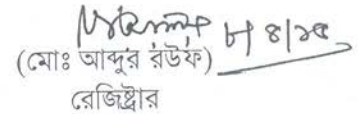 ৮।৪।১৫
(মোঃ আব্দুর রউফ)
রেজিষ্ট্রার